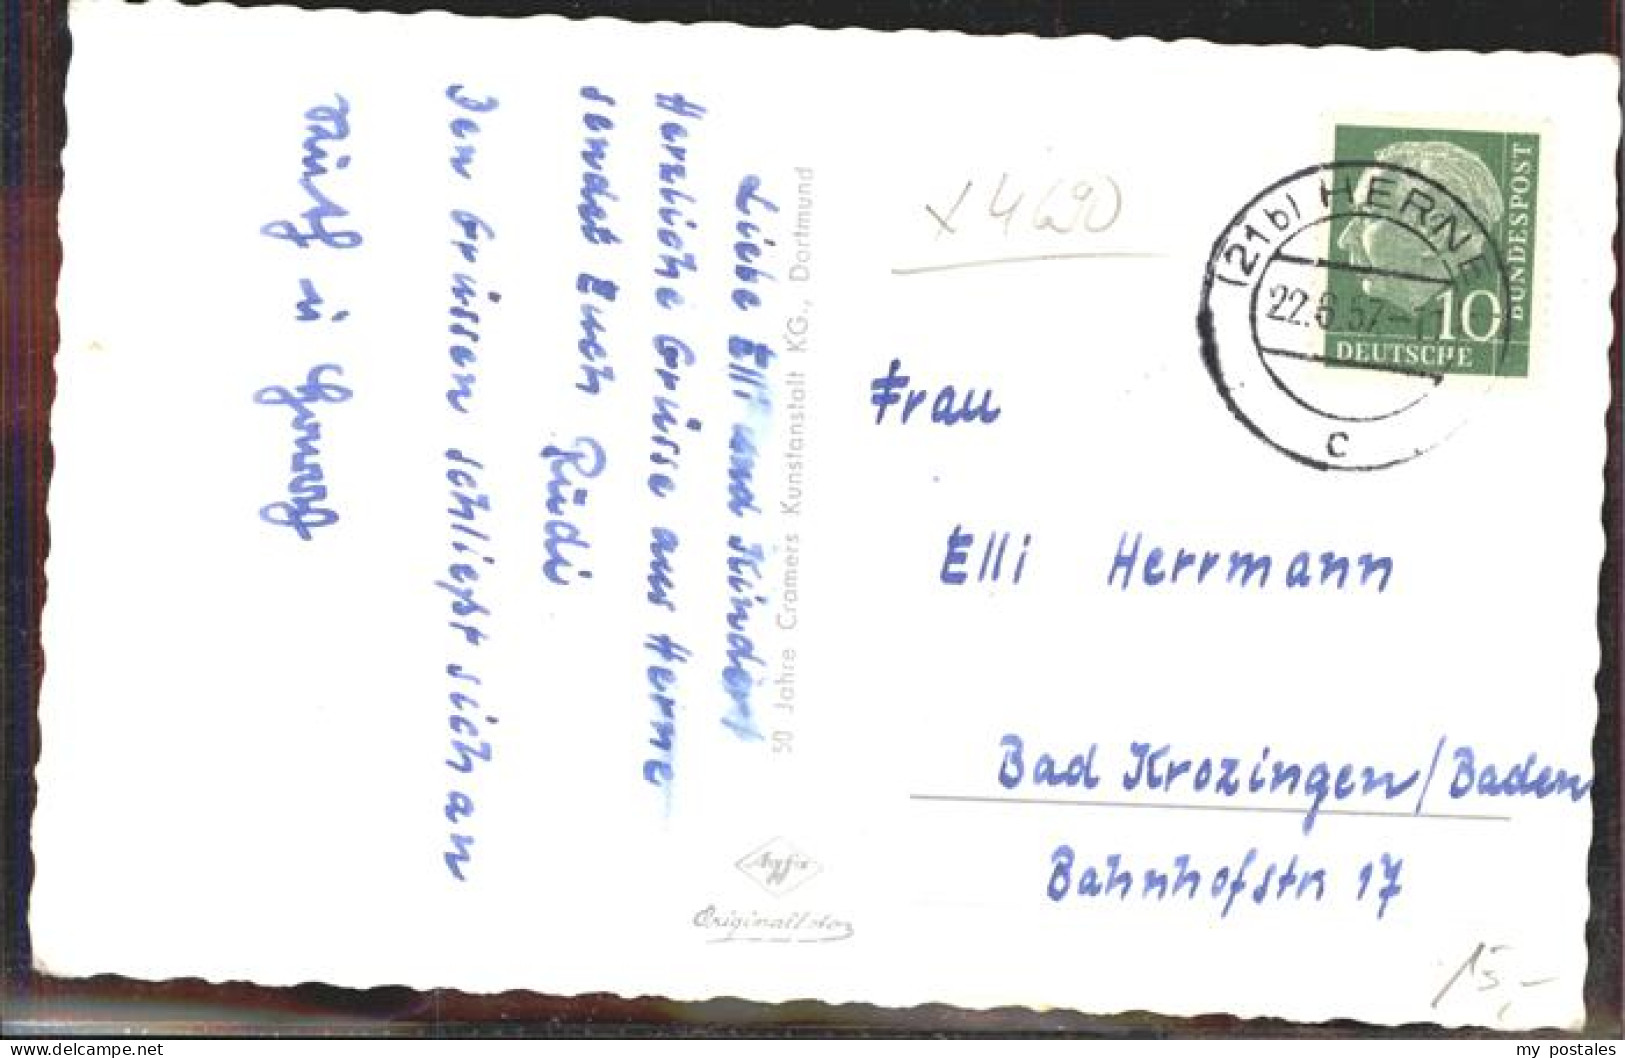 Liebe Elli und Kinder!
Herzliche Grüsse aus Herne
sendet Euch Rüdi
Den Grüssen schliept sich an
50 Jahre Cramers Kunstanstalt KG., Dortmund
Agfa
x 4690
(21b) HERNE
22.6.57-
c
10
DEUTSCHE
BUNDESPOST
Frau
Elli Herrmann
Bad Krozingen/Baden
Bahnhofstr 17
15,-
my postales